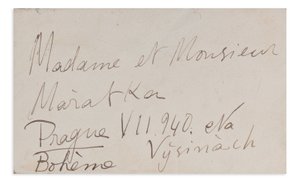 Madame et Monsieur
Màratka
Prague VII. 940. Na
Výsinàch
Bohème